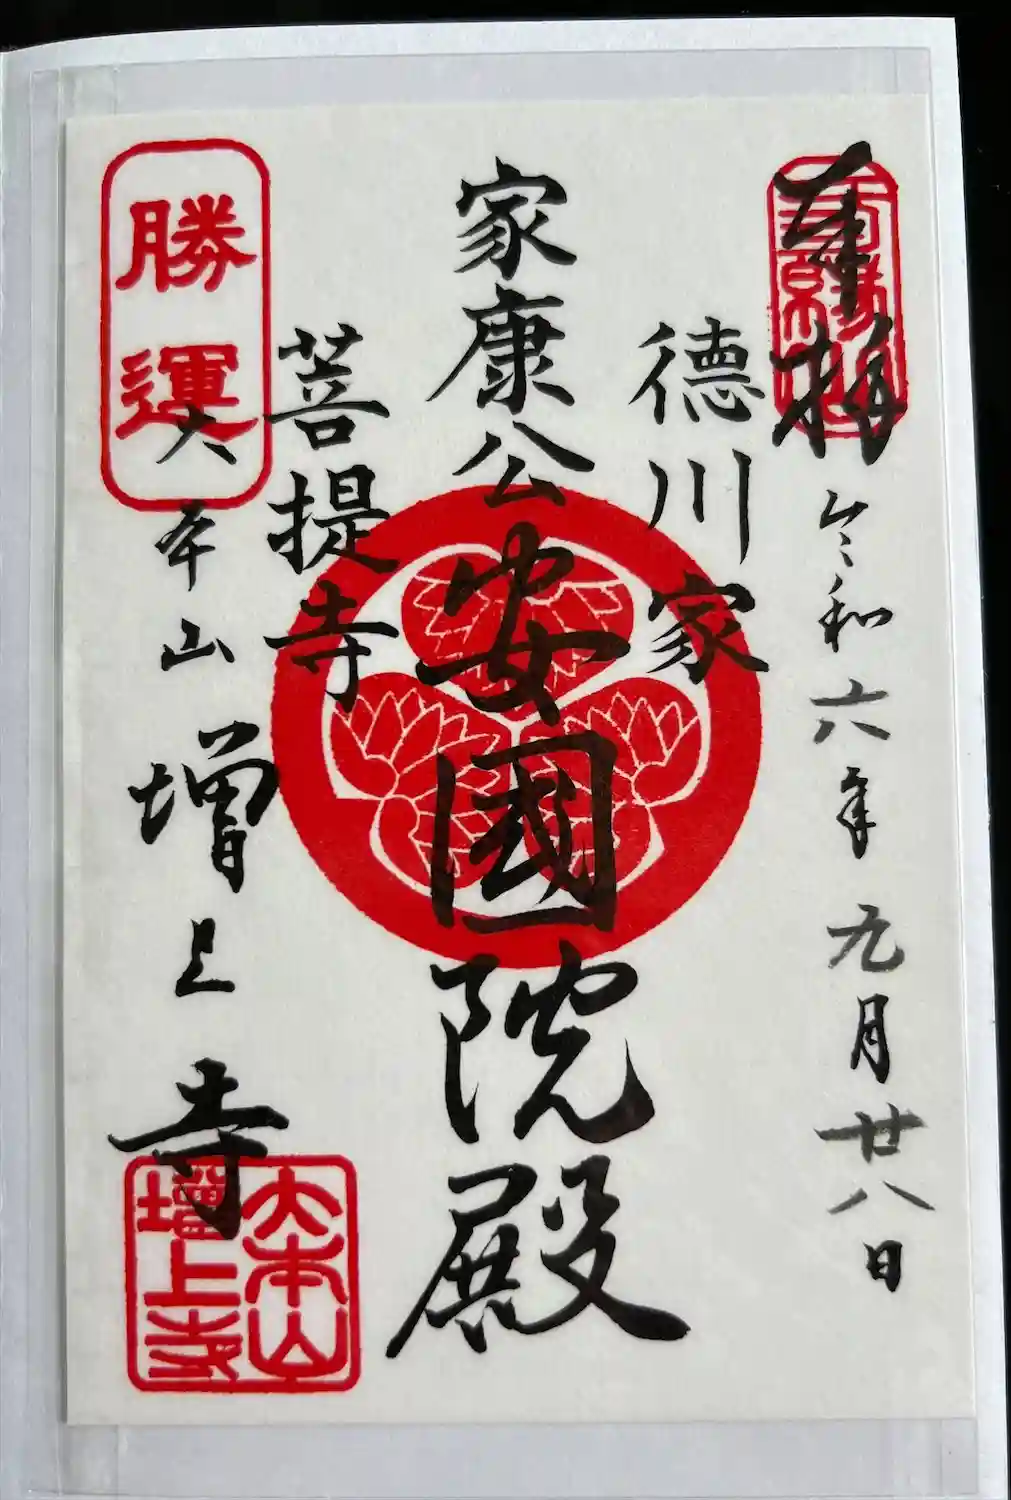 奉拝
令和六年九月廿八日
徳川家
家康公安國院殿
菩提寺
勝運
大本山増上寺
大本山
増上寺